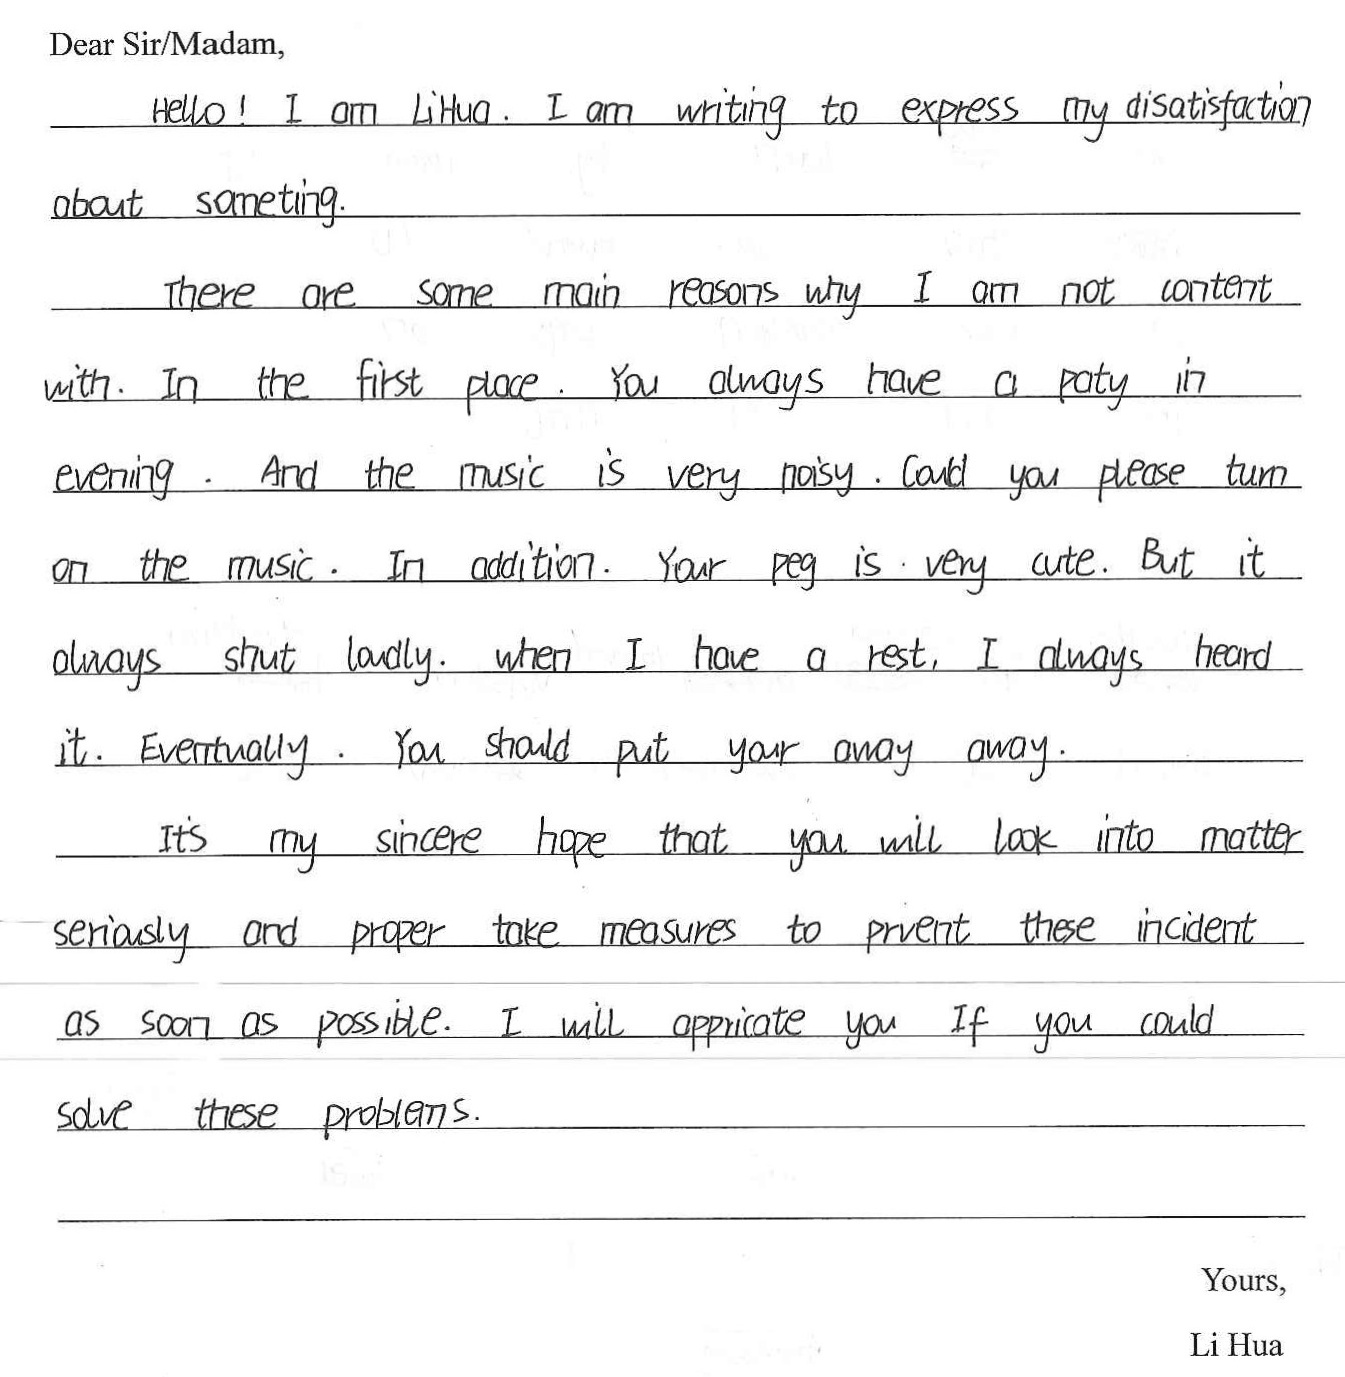 Dear Sir/Madam,
Hello! I am LiHua. I am writing to express my disatisfaction
about someting.
There are some main reasons why I am not content
with. In the first place. You always have a paty in
evening. And the music is very noisy. Could you please turn
on the music. In addition. Your peg is very cute. But it
always shut loudly. when I have a rest, I always heard
it. Eventually. You should put your away away.
It's my sincere hope that you will look into matter
seriously and proper take measures to prvent these incident
as soon as possible. I will appricate you If you could
solve these problems.
Yours,
Li Hua